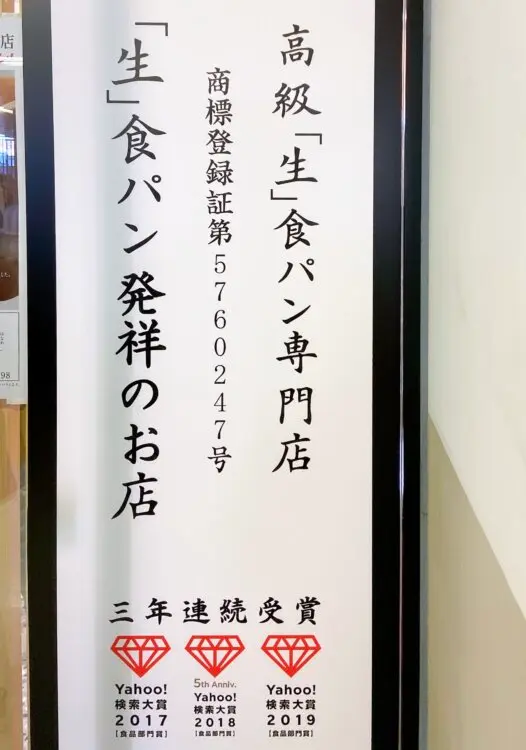 高級「生」食パン専門店
商標登録証第5760247号
「生」食パン発祥のお店
三年連続受賞
Yahoo!
検索大賞
2017
【食品部門賞】
5th Anniv.
Yahoo!
検索大賞
2018
【食品部門賞】
Yahoo!
検索大賞
2019
【食品部門賞】
店
98